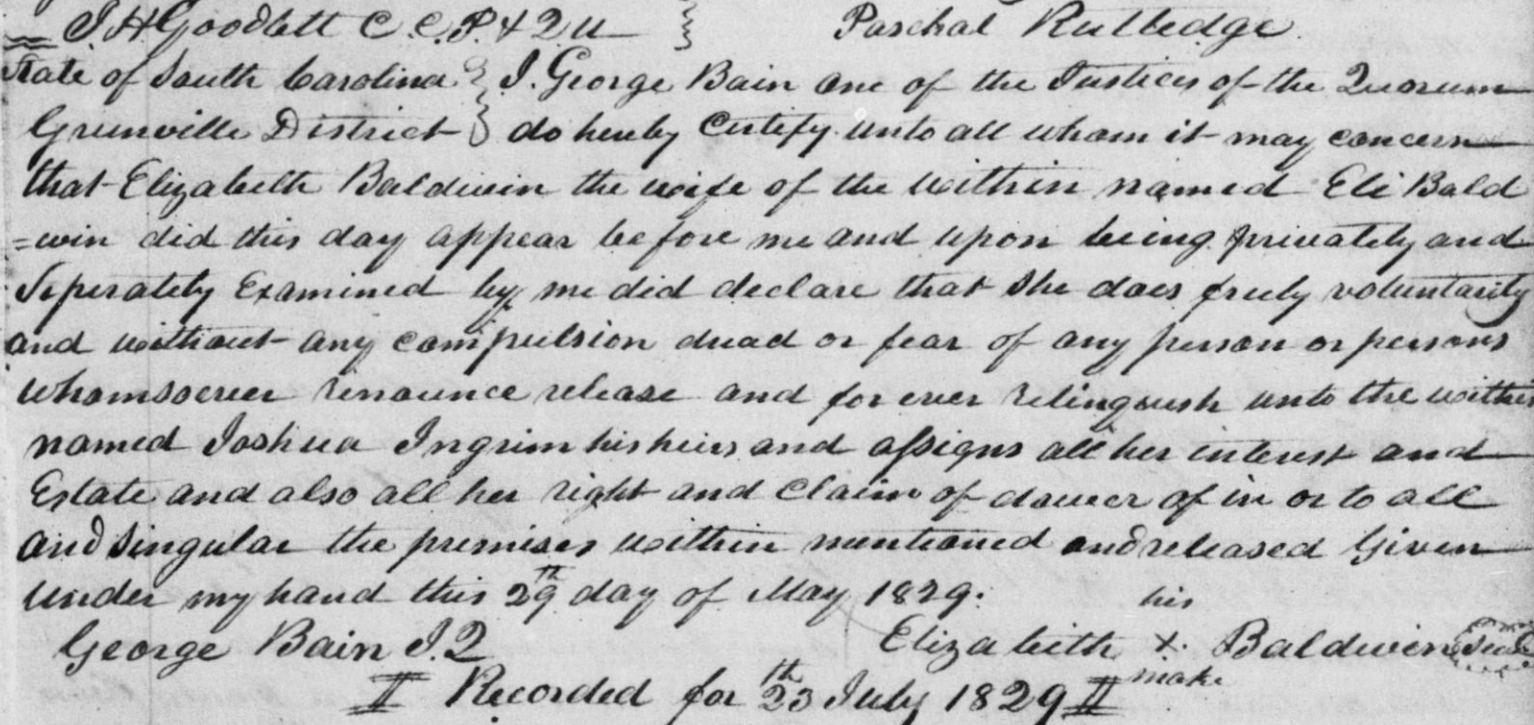 J. H Goodlett C. C. P. & Q U Paschal Rutledge.
State of South Carolina } I. George Bain one of the Justices of the Quorum
Greenville District } do hereby Certify unto all whom it may concern
that Elizabeth Baldwin the wife of the within named Eli Bald
=win did this day appear before me and upon being privately and
Seperately Examined by me did declare that She does freely voluntarily
and without any compulsion dread or fear of any person or persons
whomsoever renounce release and for ever relinquish unto the within
named Joshua Ingrim his heirs and assigns all her interest and
Estate and also all her right and Claim of dower of in or to all
and Singular the premises within mentioned and released Given
under my hand this 29th day of May 1829. his
George Bain J. Q Elizabeth X Baldwin Seal
mark
Recorded for 23th July 1829